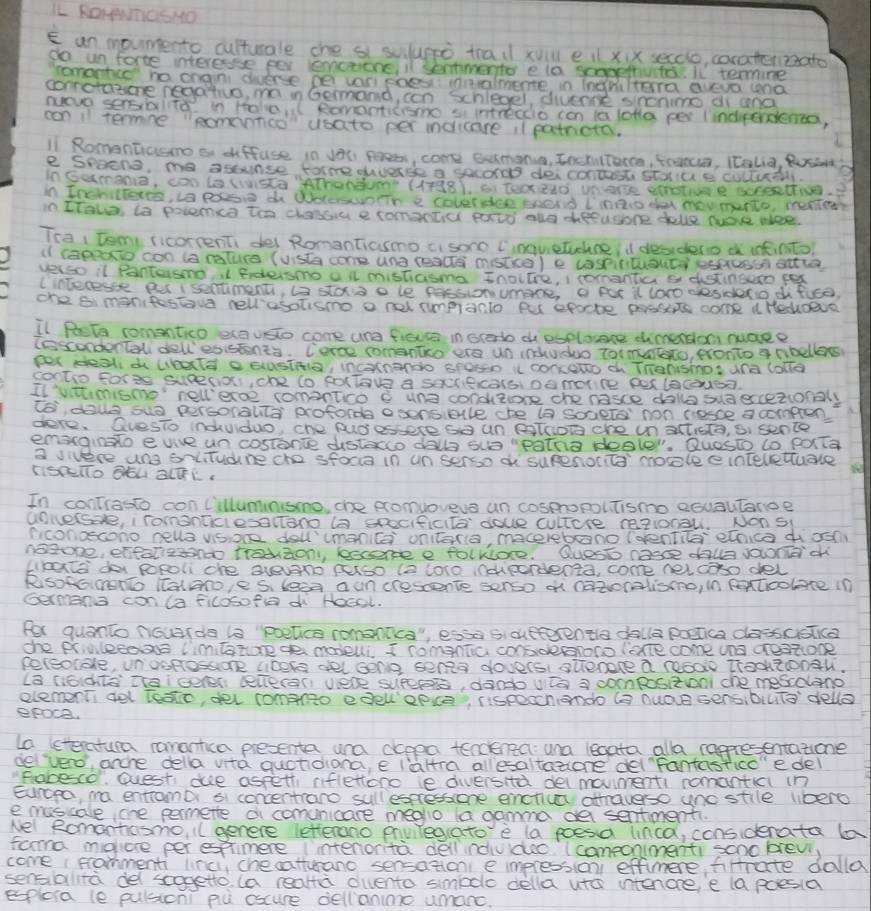 IL ROMANTICISMO
È un movimento culturale che si sviluppò tra il XVIII e il XIX secolo, caratterizzato
da un forte interesse per l'emozione, il sentimento e la soggettività. Il termine
"romantico" ha origini diverse nei vari paesi: inizialmente in Inghilterra aveva una
connotazione negativa, ma in Germania, con Schlegel, divenne sinonimo di una
nuova sensibilità. In Italia, il Romanticismo si intreccio con la lotta per l'indipendenza,
con il termine "Romantico" usato per indicare il patriota.
Il Romanticismo si diffuse in vari paesi, come Germania, Inghilterra, Francia, Italia, Russia
e Spagna, ma assunse forme diverse a seconda dei contesti storici e culturali.
In Germania, con la rivista "Athenäum" (1798), si teorizzò un'arte emotiva e soggettiva.
In Inghilterra, la poesia di Wordsworth e Coleridge segnò l'inizio del movimento, mentre
in Italia, la polemica tra classici e romantici portò alla diffusione delle nuove idee.
Tra i temi ricorrenti del Romanticismo ci sono l'inquietudine, il desiderio di infinito,
il rapporto con la natura (vista come una realtà mistica) e la spiritualità espressa attra
verso il Panteismo, il fideismo o il misticismo. Inoltre, i romantici si distinsero per
l'interesse per i sentimenti, la storia e le passioni umane, e per il loro desiderio di fuga,
che si manifestava nell'esotismo o nel rimpianto per epoche passate come il Medioevo
Il Poeta romantico era visto come una figura in grado di esplorare dimensioni nuove e
trascendentali dell'esistenza. L'eroe romantico era un individuo tormentato, pronto a ribellarsi
per ideali di libertà e giustizia, incarnando spesso il concetto di Titanismo: una lotta
contro forze superiori, che lo portava a sacrificarsi o a morire per la causa.
Il "vittimismo" nell'eroe romantico è una condizione che nasce dalla sua eccezionali
tà, dalla sua personalità profonda e sensibile che la società non riesce a compren
dere. Questo individuo, che può essere sia un patriota che un artista, si sente
emarginato e vive un costante distacco dalla sua "patria ideale". Questo lo porta
a vivere una solitudine che sfocia in un senso di superiorità morale e intellettuale
rispetto agli altri.
In contrasto con l'illuminismo, che promuoveva un cosmopolitismo egualitario e
universale, i romantici esaltano la specificità delle culture nazionali. Non si
riconoscono nella visione dell'umanità unitaria, ma celebrano l'identità etnica di ogni
nazione, enfatizzando tradizioni, leggende e folklore. Questo nasce dalla volontà di
libertà dei popoli che avevano perso la loro indipendenza, come nel caso del
Risorgimento italiano, e si lega a un crescente senso di nazionalismo, in particolare in
Germania con la filosofia di Hegel.
Per quanto riguarda la "poetica romantica", essa si differenzia dalla poetica classicistica
che privilegiava l'imitazione dei modelli. I romantici consideravano l'arte come una creazione
personale, un'espressione libera del genio, senza doversi attenere a regole tradizionali.
La rigidità tra i generi letterari viene superata, dando vita a composizioni che mescolano
elementi del teatro, del romanzo e dell'epica, rispecchiando la nuova sensibilità della
epoca.
La letteratura romantica presenta una doppia tendenza: una legata alla rappresentazione
del "vero", anche della vita quotidiana, e l'altra all'esaltazione del "fantastico" e del
"fiabesco". Questi due aspetti riflettono le diversità dei movimenti romantici in
Europa, ma entrambi si concentrano sull'espressione emotiva attraverso uno stile libero
e musicale, che permette di comunicare meglio la gamma dei sentimenti.
Nel Romanticismo, il genere letterario privilegiato è la poesia lirica, considerata la
forma migliore per esprimere l'interiorità dell'individuo. I componimenti sono brevi,
come i frammenti lirici, che catturano sensazioni e impressioni effimere, filtrate dalla
sensibilità del soggetto. La realtà diventa simbolo della vita interiore, e la poesia
esplora le pulsioni più oscure dell'animo umano.